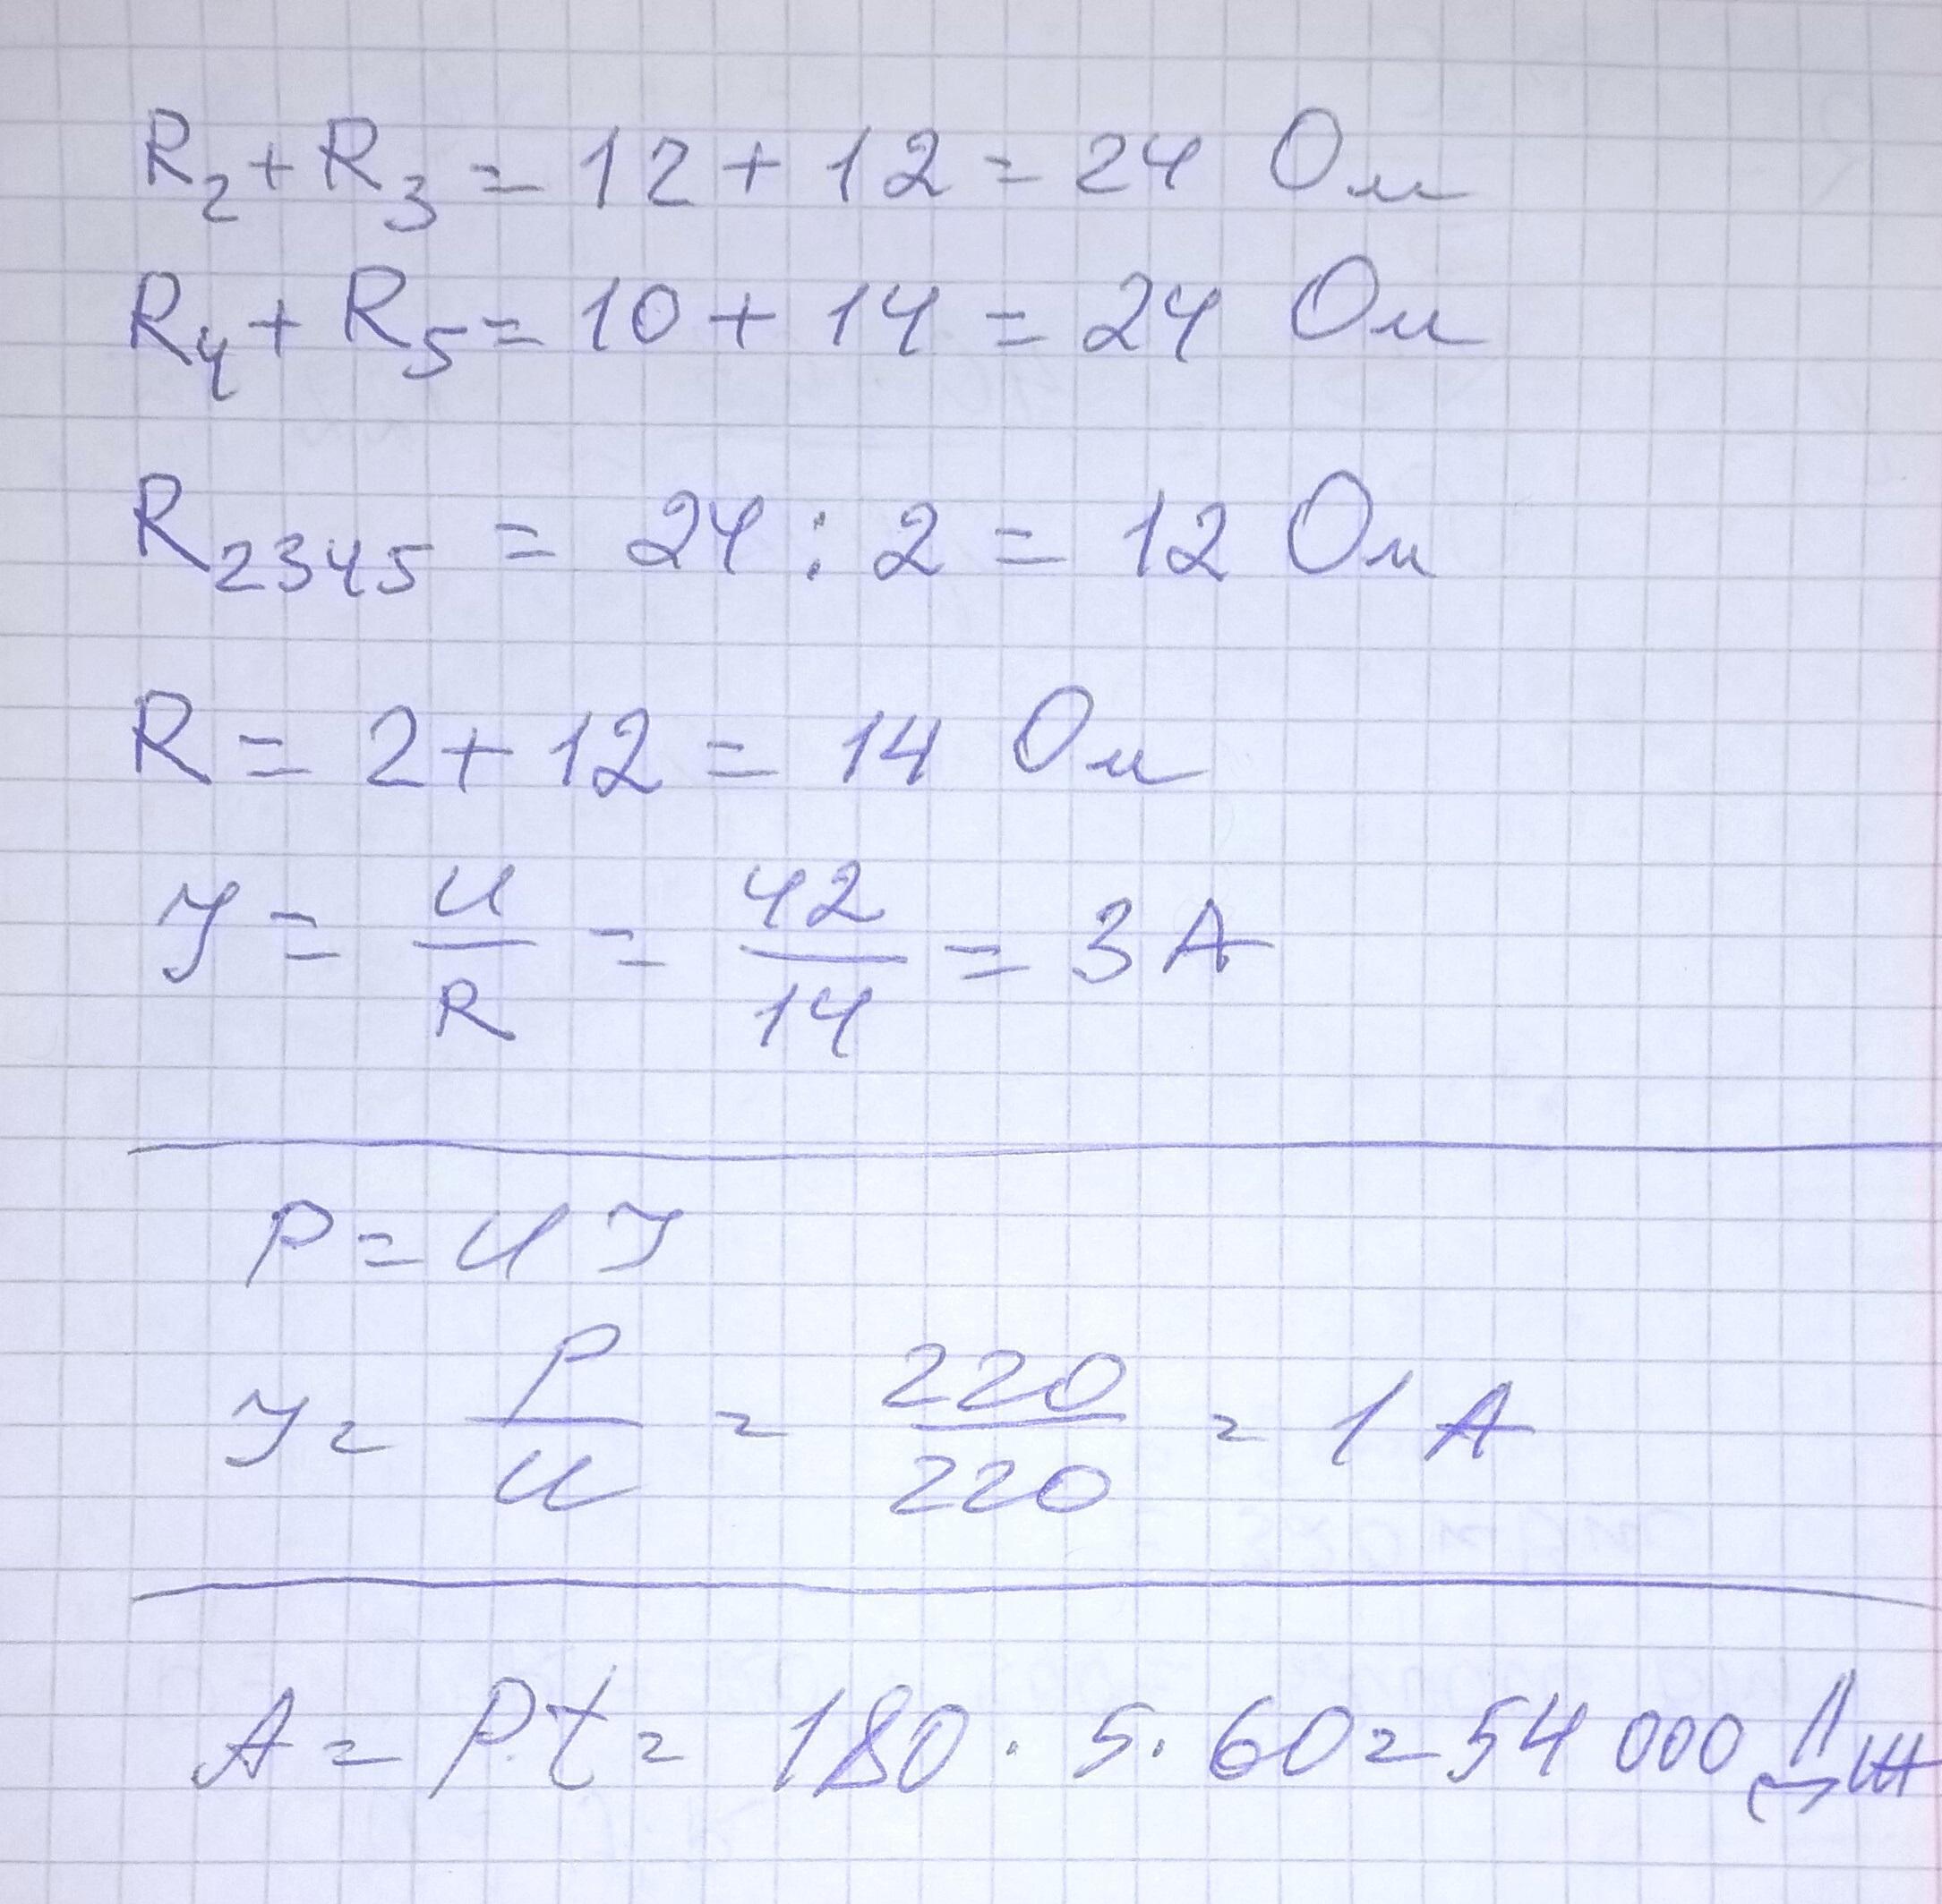 R₂ + R₃ = 12 + 12 = 24 Ом
R₄ + R₅ = 10 + 14 = 24 Ом
R₂₃₄₅ = 24 : 2 = 12 Ом
R = 2 + 12 = 14 Ом
I = U/R = 42/14 = 3 А
P = U I
I = P/U = 220/220 = 1 А
A = P·t = 180 · 5 · 60 = 54 000 Дж